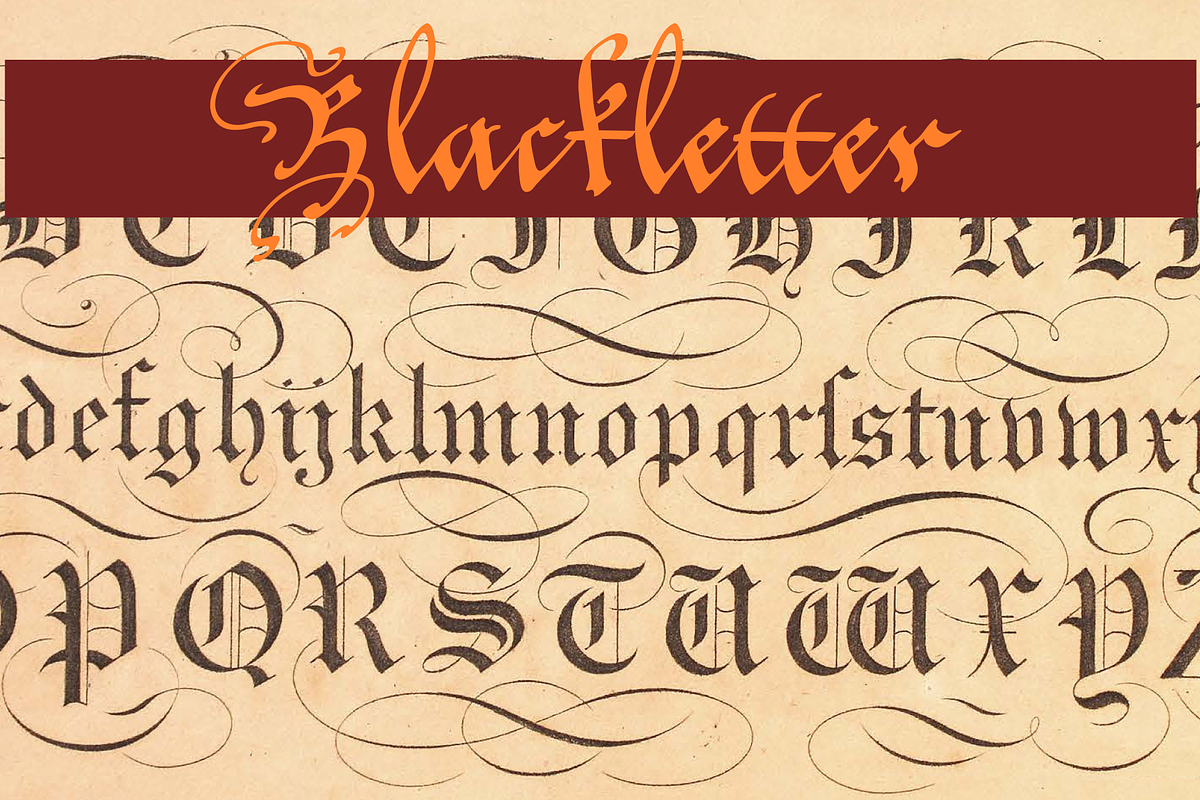 Blackletter
B C D E F G H I K L
defghijklmnopqrſstuvwx
P Q R S T U W X Y Z